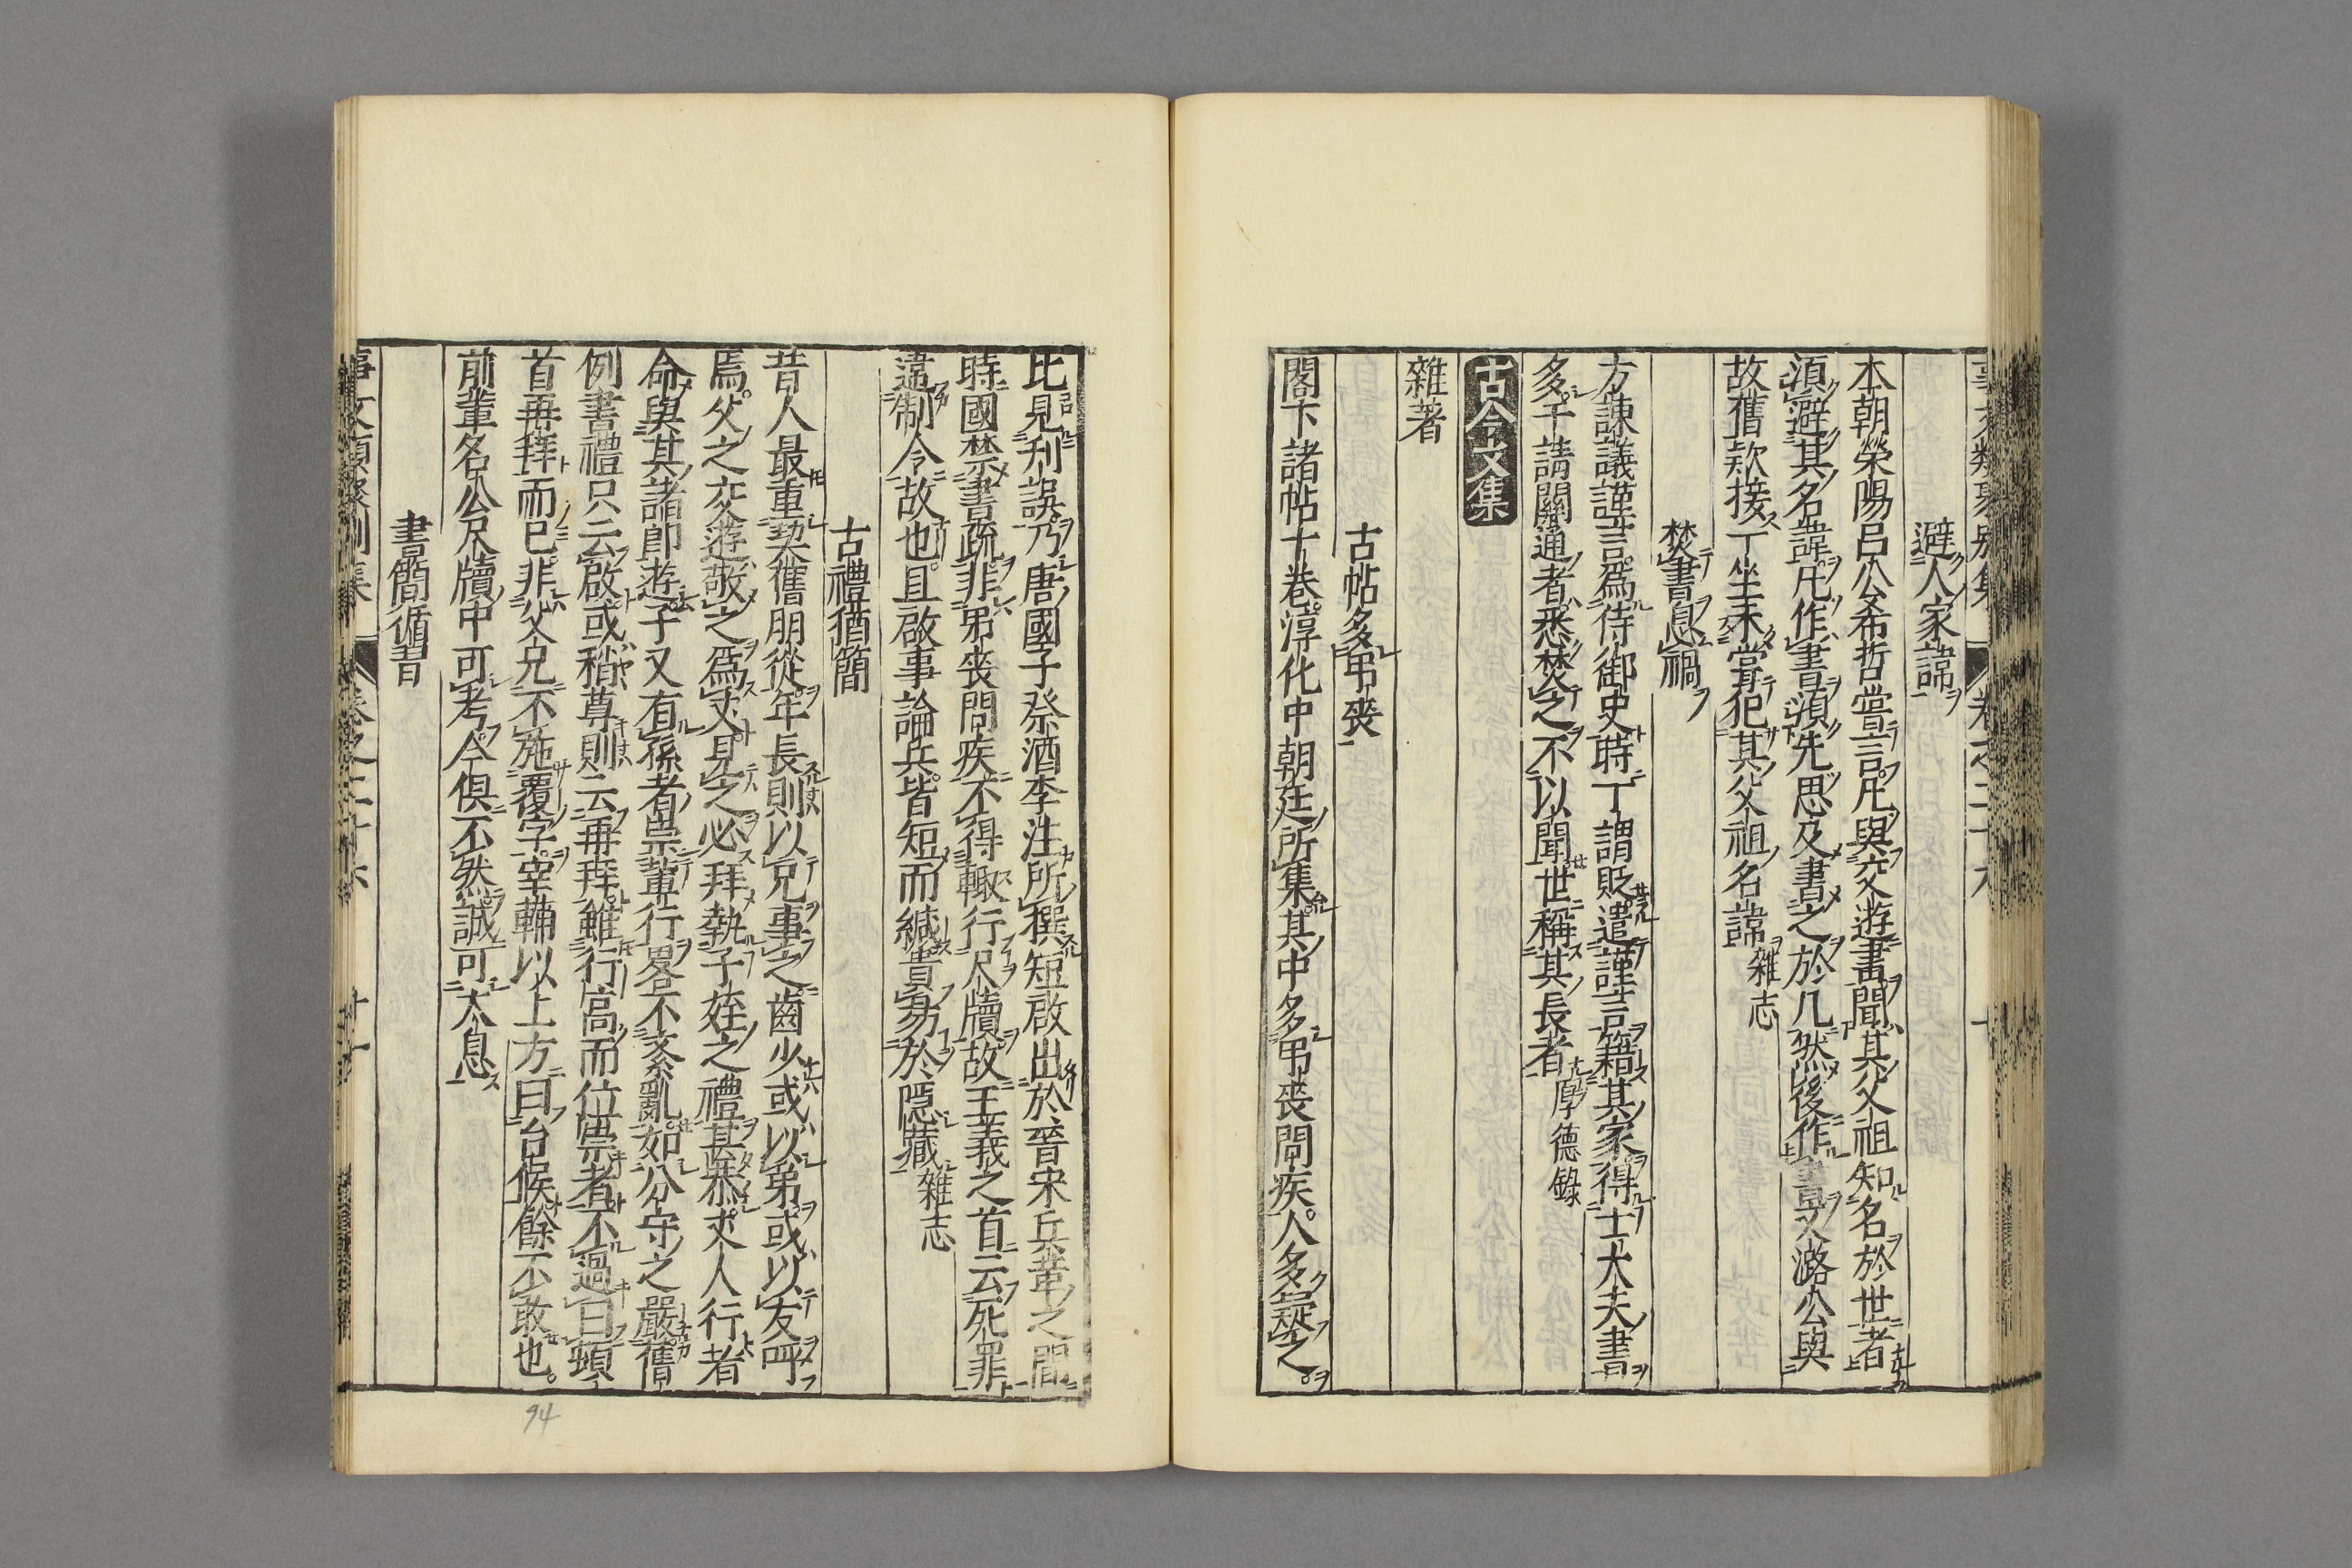 避人家諱
本朝滎陽呂公希哲嘗言凡與交遊書聞其父祖知名於世者
須避其名諱凡作書須先思及書之於几然後作書又潞公與
故舊款接丁坐未嘗犯其父祖名諱雜志
焚書息禍
方諫議謹言爲侍御史時丁謂貶遣謹言籍其家得士大夫書
多干請關通者悉焚之不以聞世稱其長者厚德錄
古今文集
雜著
古帖多弔喪
閣下諸帖十卷淳化中朝廷所集其中多弔喪問疾人多疑之
比見刋誤乃唐國子祭酒李涪所撰短啟出於晉宋兵革之間
時國禁書疏非弔喪問疾不得輙行尺牘故王羲之首云死罪
違制令故也且啟事論兵皆短而緘貴易於隱藏雜志
古禮猶簡
昔人最重契舊朋從年長則以兄事之齒少或以弟或以友呼
焉父之交遊敬之爲丈見之必拜執子姪之禮甚恭丈人行者
命與其諸郎遊子又有孫者崇輩行畧不紊亂如分守之嚴舊
例書禮只云啟或稍尊則云再拜雖行高而位崇者不過曰頓
首再拜而已非父兄不施覆字宰輔以上方曰台候餘不敢也
前輩名公尺牘中可考今俱不然誠可太息
書簡循昔
卷之二十六
十一
94